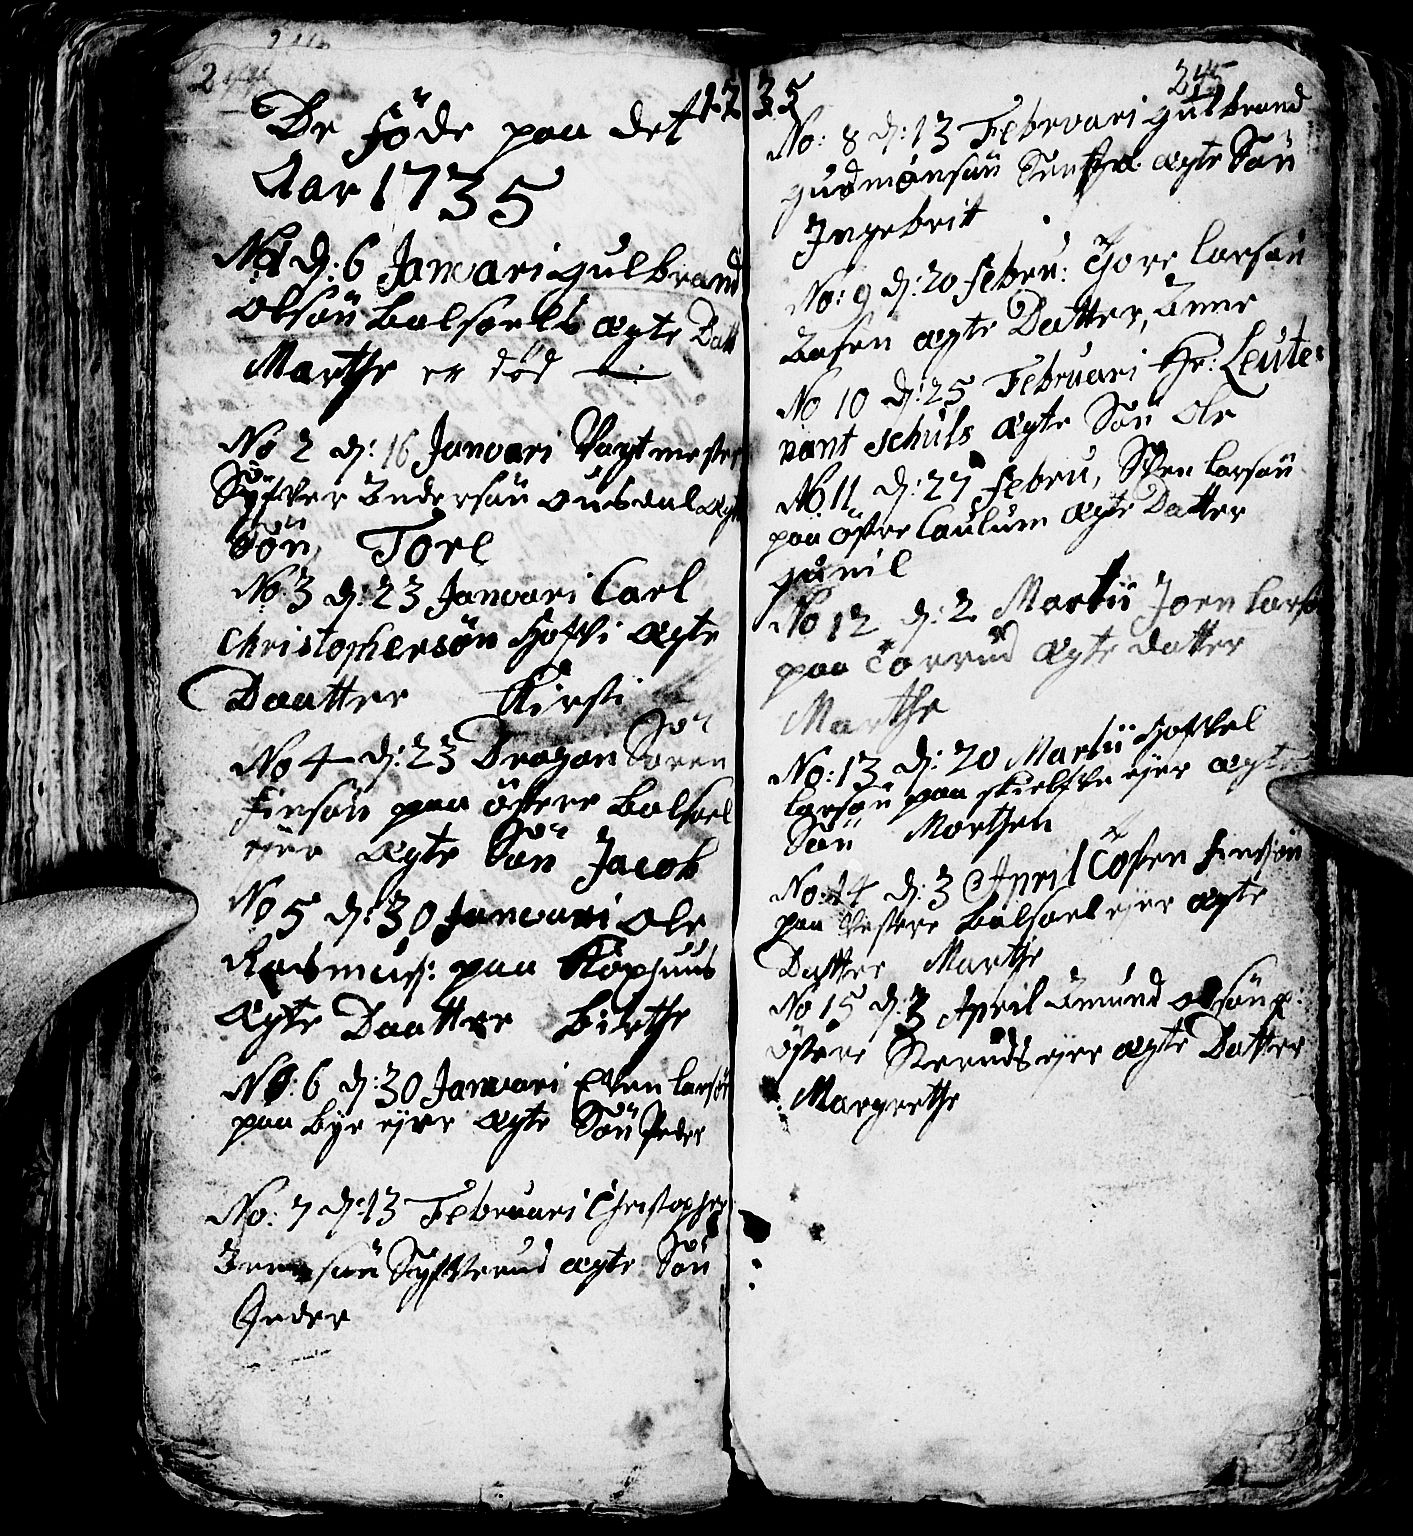 244
1735
De föde paa det
Aar 1735
No 1 d: 6 Januari gulbrand
olsøn balsoels ægte Datt
Marthe er död
No 2 d: 16 Januari Vagtmester
Syfver Andersøn ousdal ægt
Søn, Tore
No: 3 d: 23 Januari Carl
Christophersøn Hofvi ægte
Daatter Kirsti
No 4 d: 23 Dragon Søren
finsøn paa östere balsoel
ejer ægte Søn Jacob
No 5 d: 30 Januari ole
Rasmus: paa Kophuus
ægte Daatter birthe
No: 6 d: 30 Januari Even larsøn
paa bye ejer ægte Søn Peder
No: 7 d: 13 Februari Christopher
Syfverud ægte Søn
Peder
245
No: 8 d: 13 Februari gulbrand
gudmønsøn ægte Søn
Ingebrit
No: 9 d: 20 febru: Tore larsøn
Aasen ægte Datter, Anne
No 10 d: 25 Februari Hr: Leute-
nant schuls ægte Søn Ole
No 11 d: 27 febru, Sven larsøn
paa östre laulum ægte Datter
gunil
No 12 d: 2 Martii Joen larsø
paa Torrud ægte datter
Marthe
No: 13 d: 20 Martii Hofvel
larsøn paa skielfve ejer ægte
Søn Morthen
No: 14 d: 3 April Tosten finsøn
paa Vestere balsoel ejer ægte
Datter Marthe
No 15 d: 3 April Amund olsøn p:
östere Steruds ejer ægte Datter
Margrethe